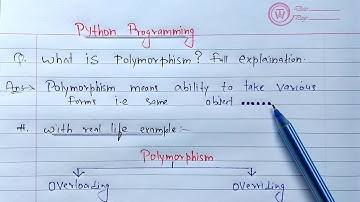 W Date
Page
Python Programming
Q. What is polymorphism? full explaination.
Ans→ Polymorphism means ability to take various
forms i.e some object ......
#. With real life example:-
Polymorphism
Overloading Overriding